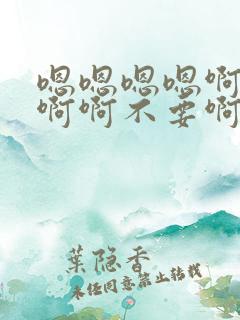 嗯嗯嗯嗯啊
啊啊不要啊
葉隐香
未经同意禁止转载